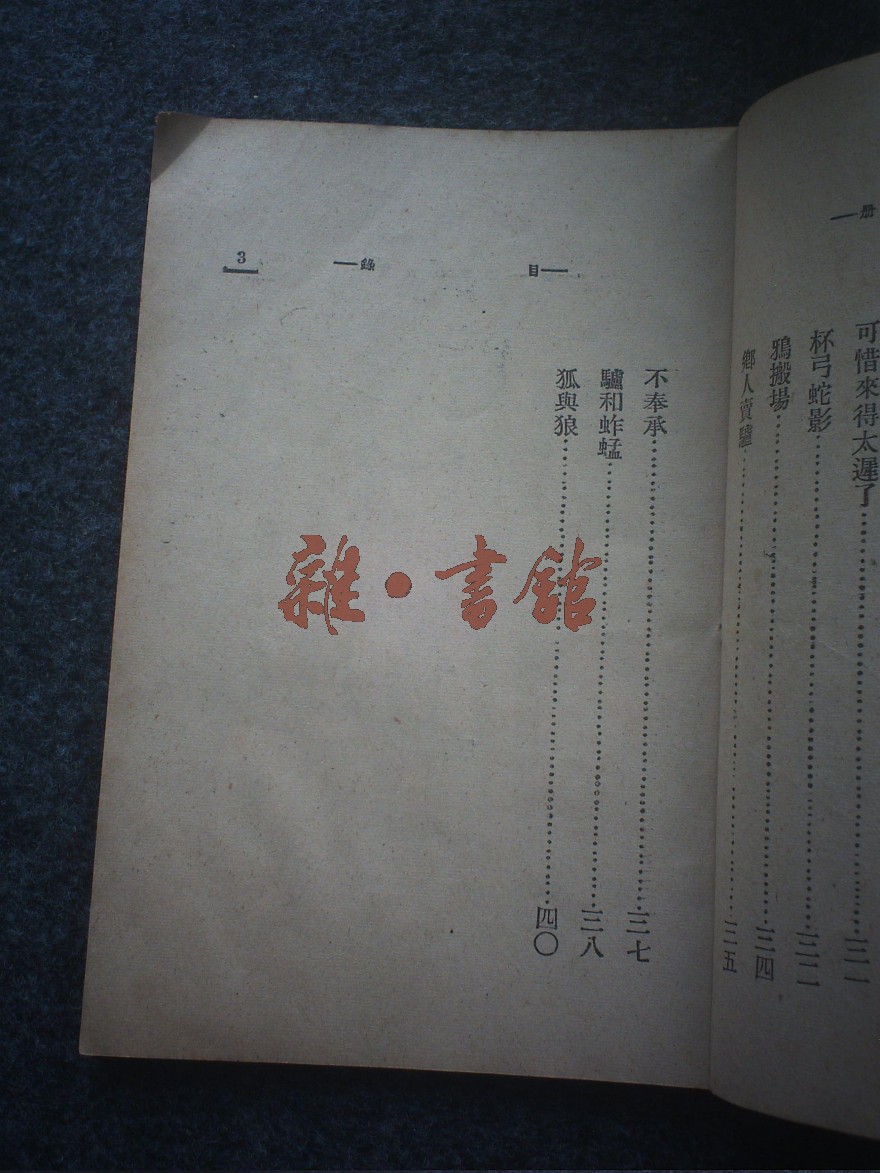 册
可惜來得太遲了……三一
杯弓蛇影……三二
鴉搬場……三四
鄉人賣驢……三五
目 錄 3
不奉承……三七
驢和蚱蜢……三八
狐與狼……四〇
雜·書館